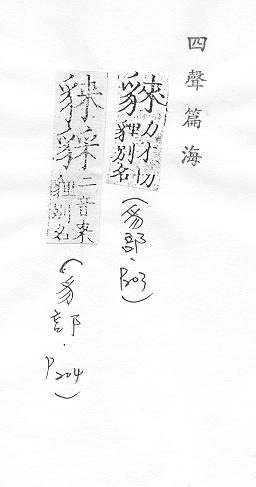 四聲篇海
力才切
貍別名
(豸部.P203)
二音來
貍別名
(豸部.P204)